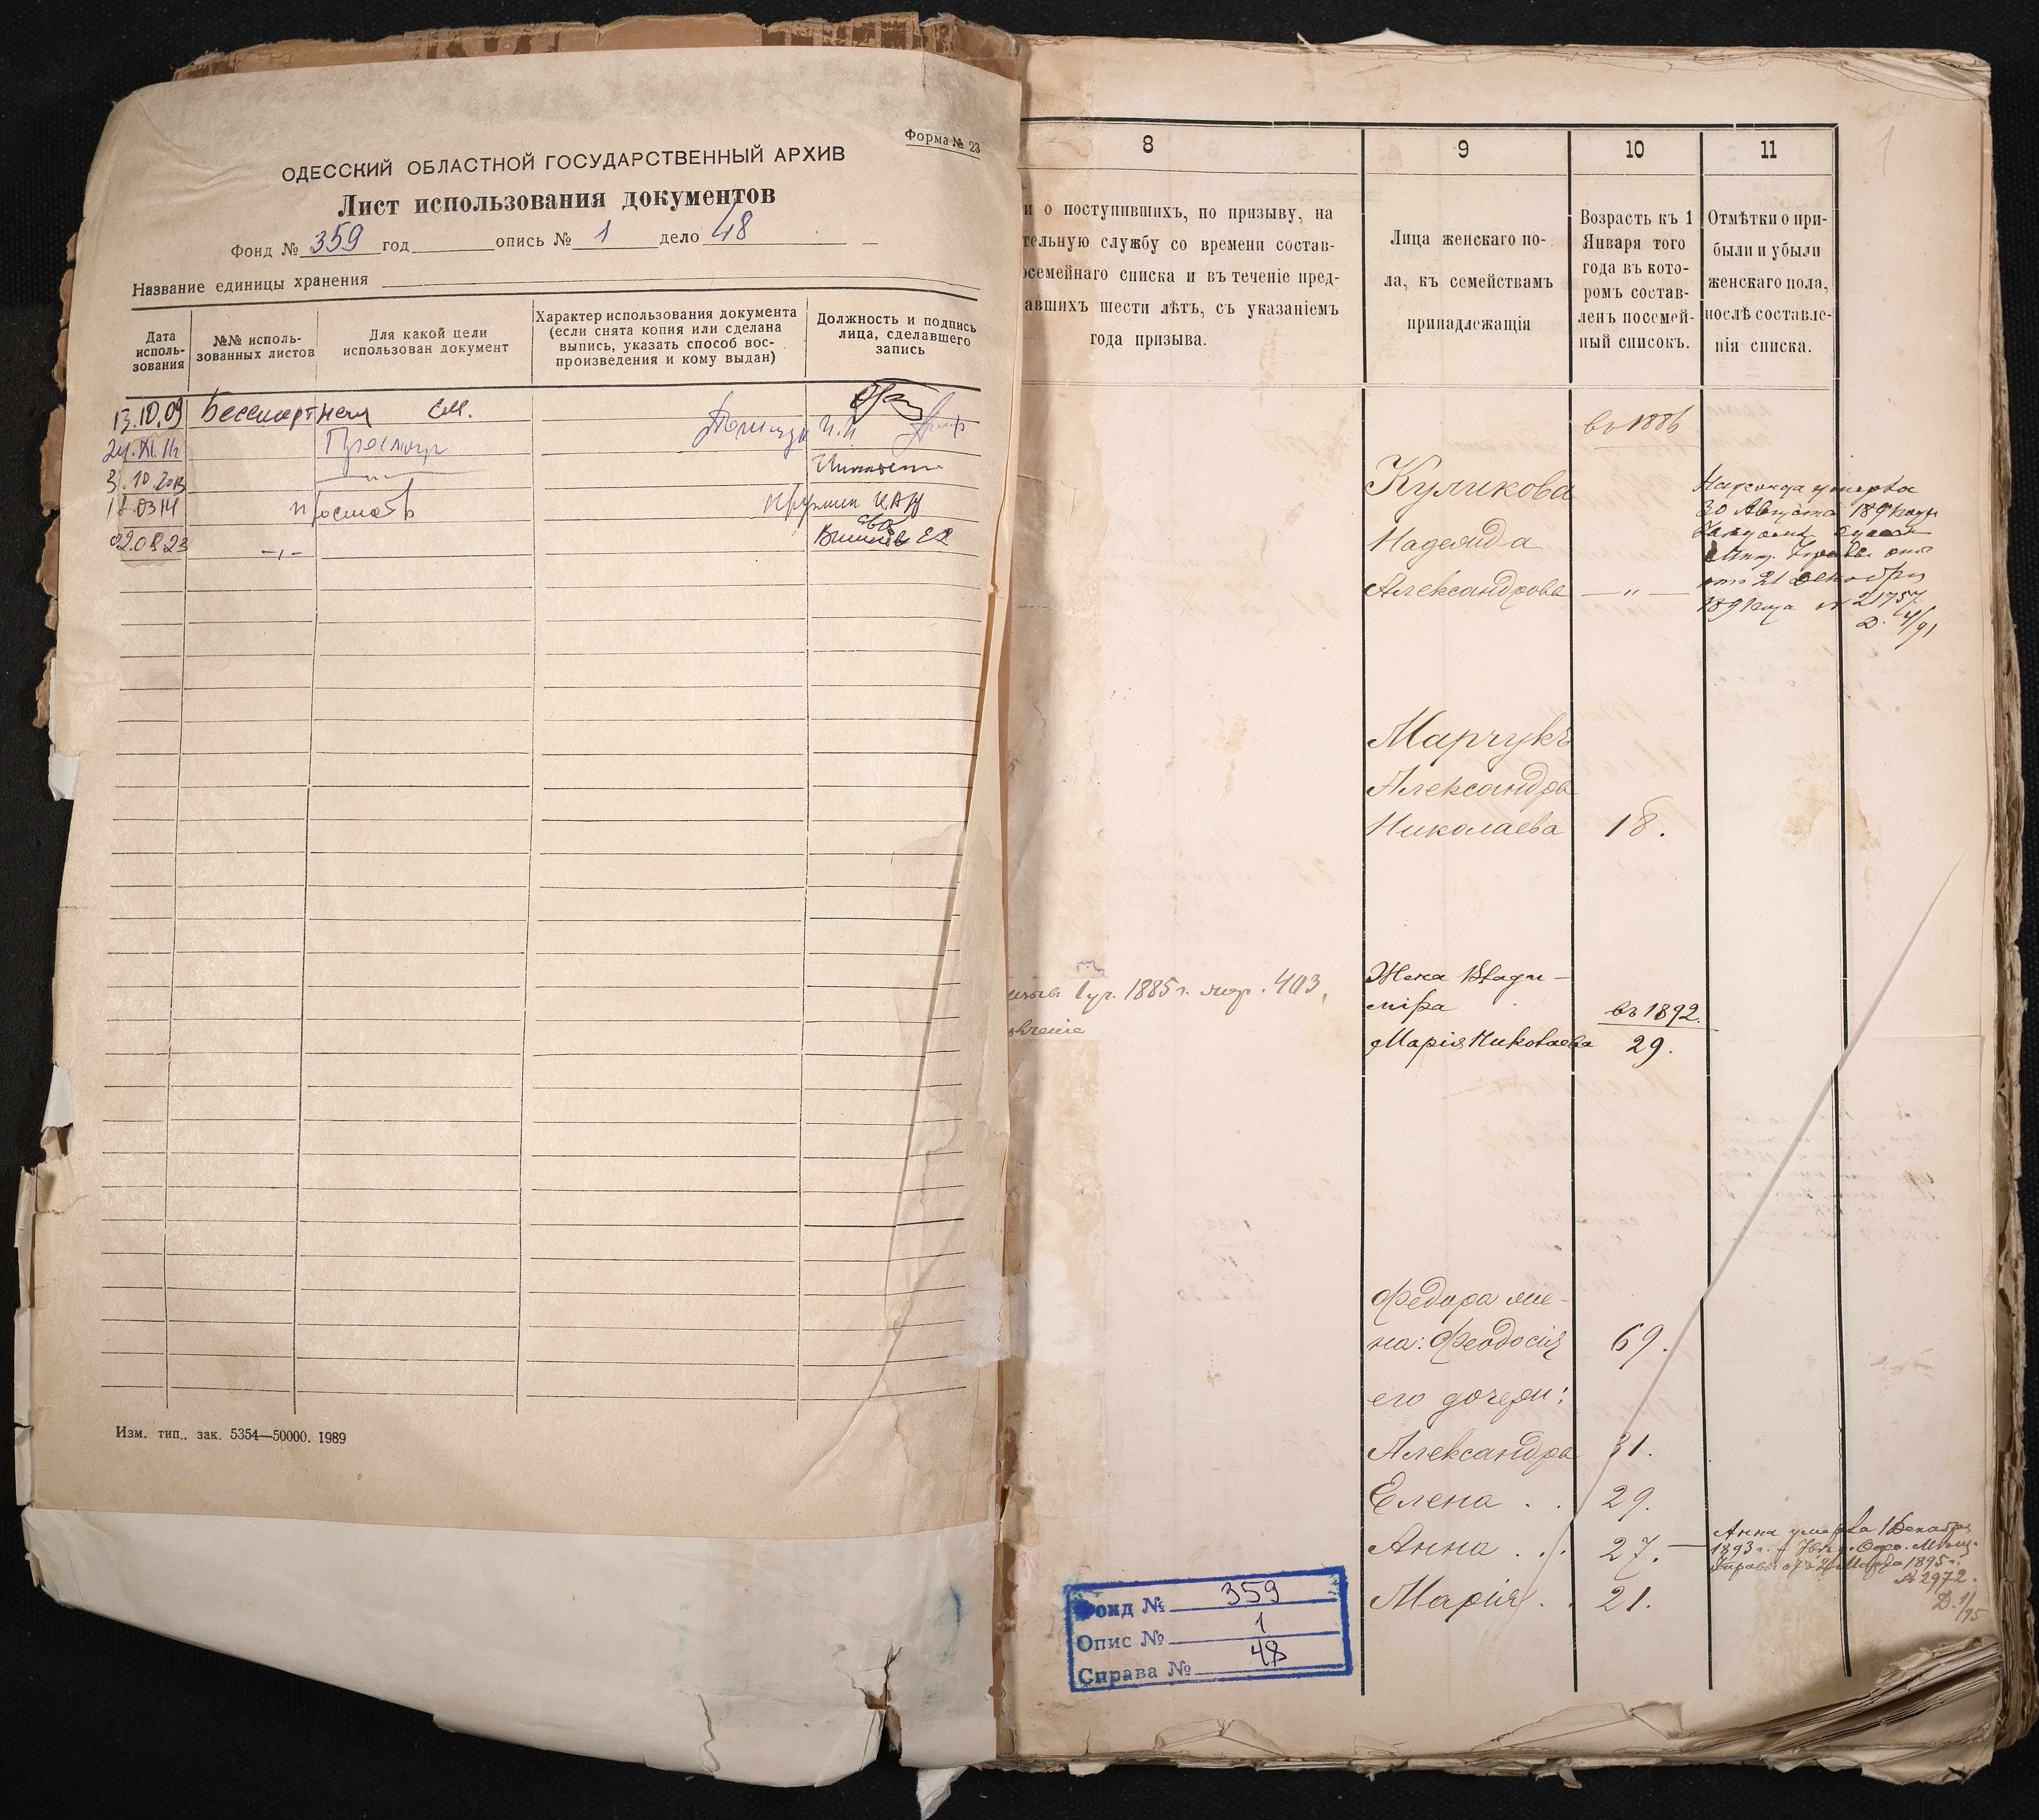 Форма № 23
ОДЕССКИЙ ОБЛАСТНОЙ ГОСУДАРСТВЕННЫЙ АРХИВ
Лист использования документов
Фонд № 359 год опись № 1 дело 48
Название единицы хранения
Дата исполь-зования
№№ исполь-зованных листов
Для какой цели использован документ
Характер использования документа
(если снята копия или сделана
выпись, указать способ вос-
произведения и кому выдан)
Должность и подпись
лица, сделавшего
запись
13.10.09
3.10.2013
просмотр
02.08.23 —„—
Изм. тип., зак. 5354—50000. 1989
8
и о поступившихъ, по призыву, на
тельную службу со времени состав-
осемейнаго списка и въ теченіе пред-
авшихъ шести лѣтъ, съ указаніемъ
года призыва.
1 уч. 1885 г. жер. 403,
9
Лица женскаго по-
ла, къ семействамъ
принадлежащія
10
Возрастъ къ 1
Января того
года въ кото-
ромъ состав-
ленъ посемей-
ный списокъ.
11
Отмѣтки о при-
были и убыли
женскаго пола,
послѣ составле-
нія списка.
1
въ 1886
Куликова
Надежда
Александрова — „ —
Надежда умерла
30 Августа
отъ 21 Декабря
№ 21757
Д. 4/91
Марчукъ
Александра
Николаева 18.
Жена Влади-
міра
въ 1892.
Марія Николаева 29.
Федора же-
на: Феодосія 69.
его дочери:
Александра 31.
Елена . . 29.
Анна . . . 27. —
Анна умерла 1 Декабря
1893 г.
Управы Марта 1895 г.
№ 2972.
Д. 1/95
Марія . . 21.
Фонд № 359
Опис № 1
Справа № 48